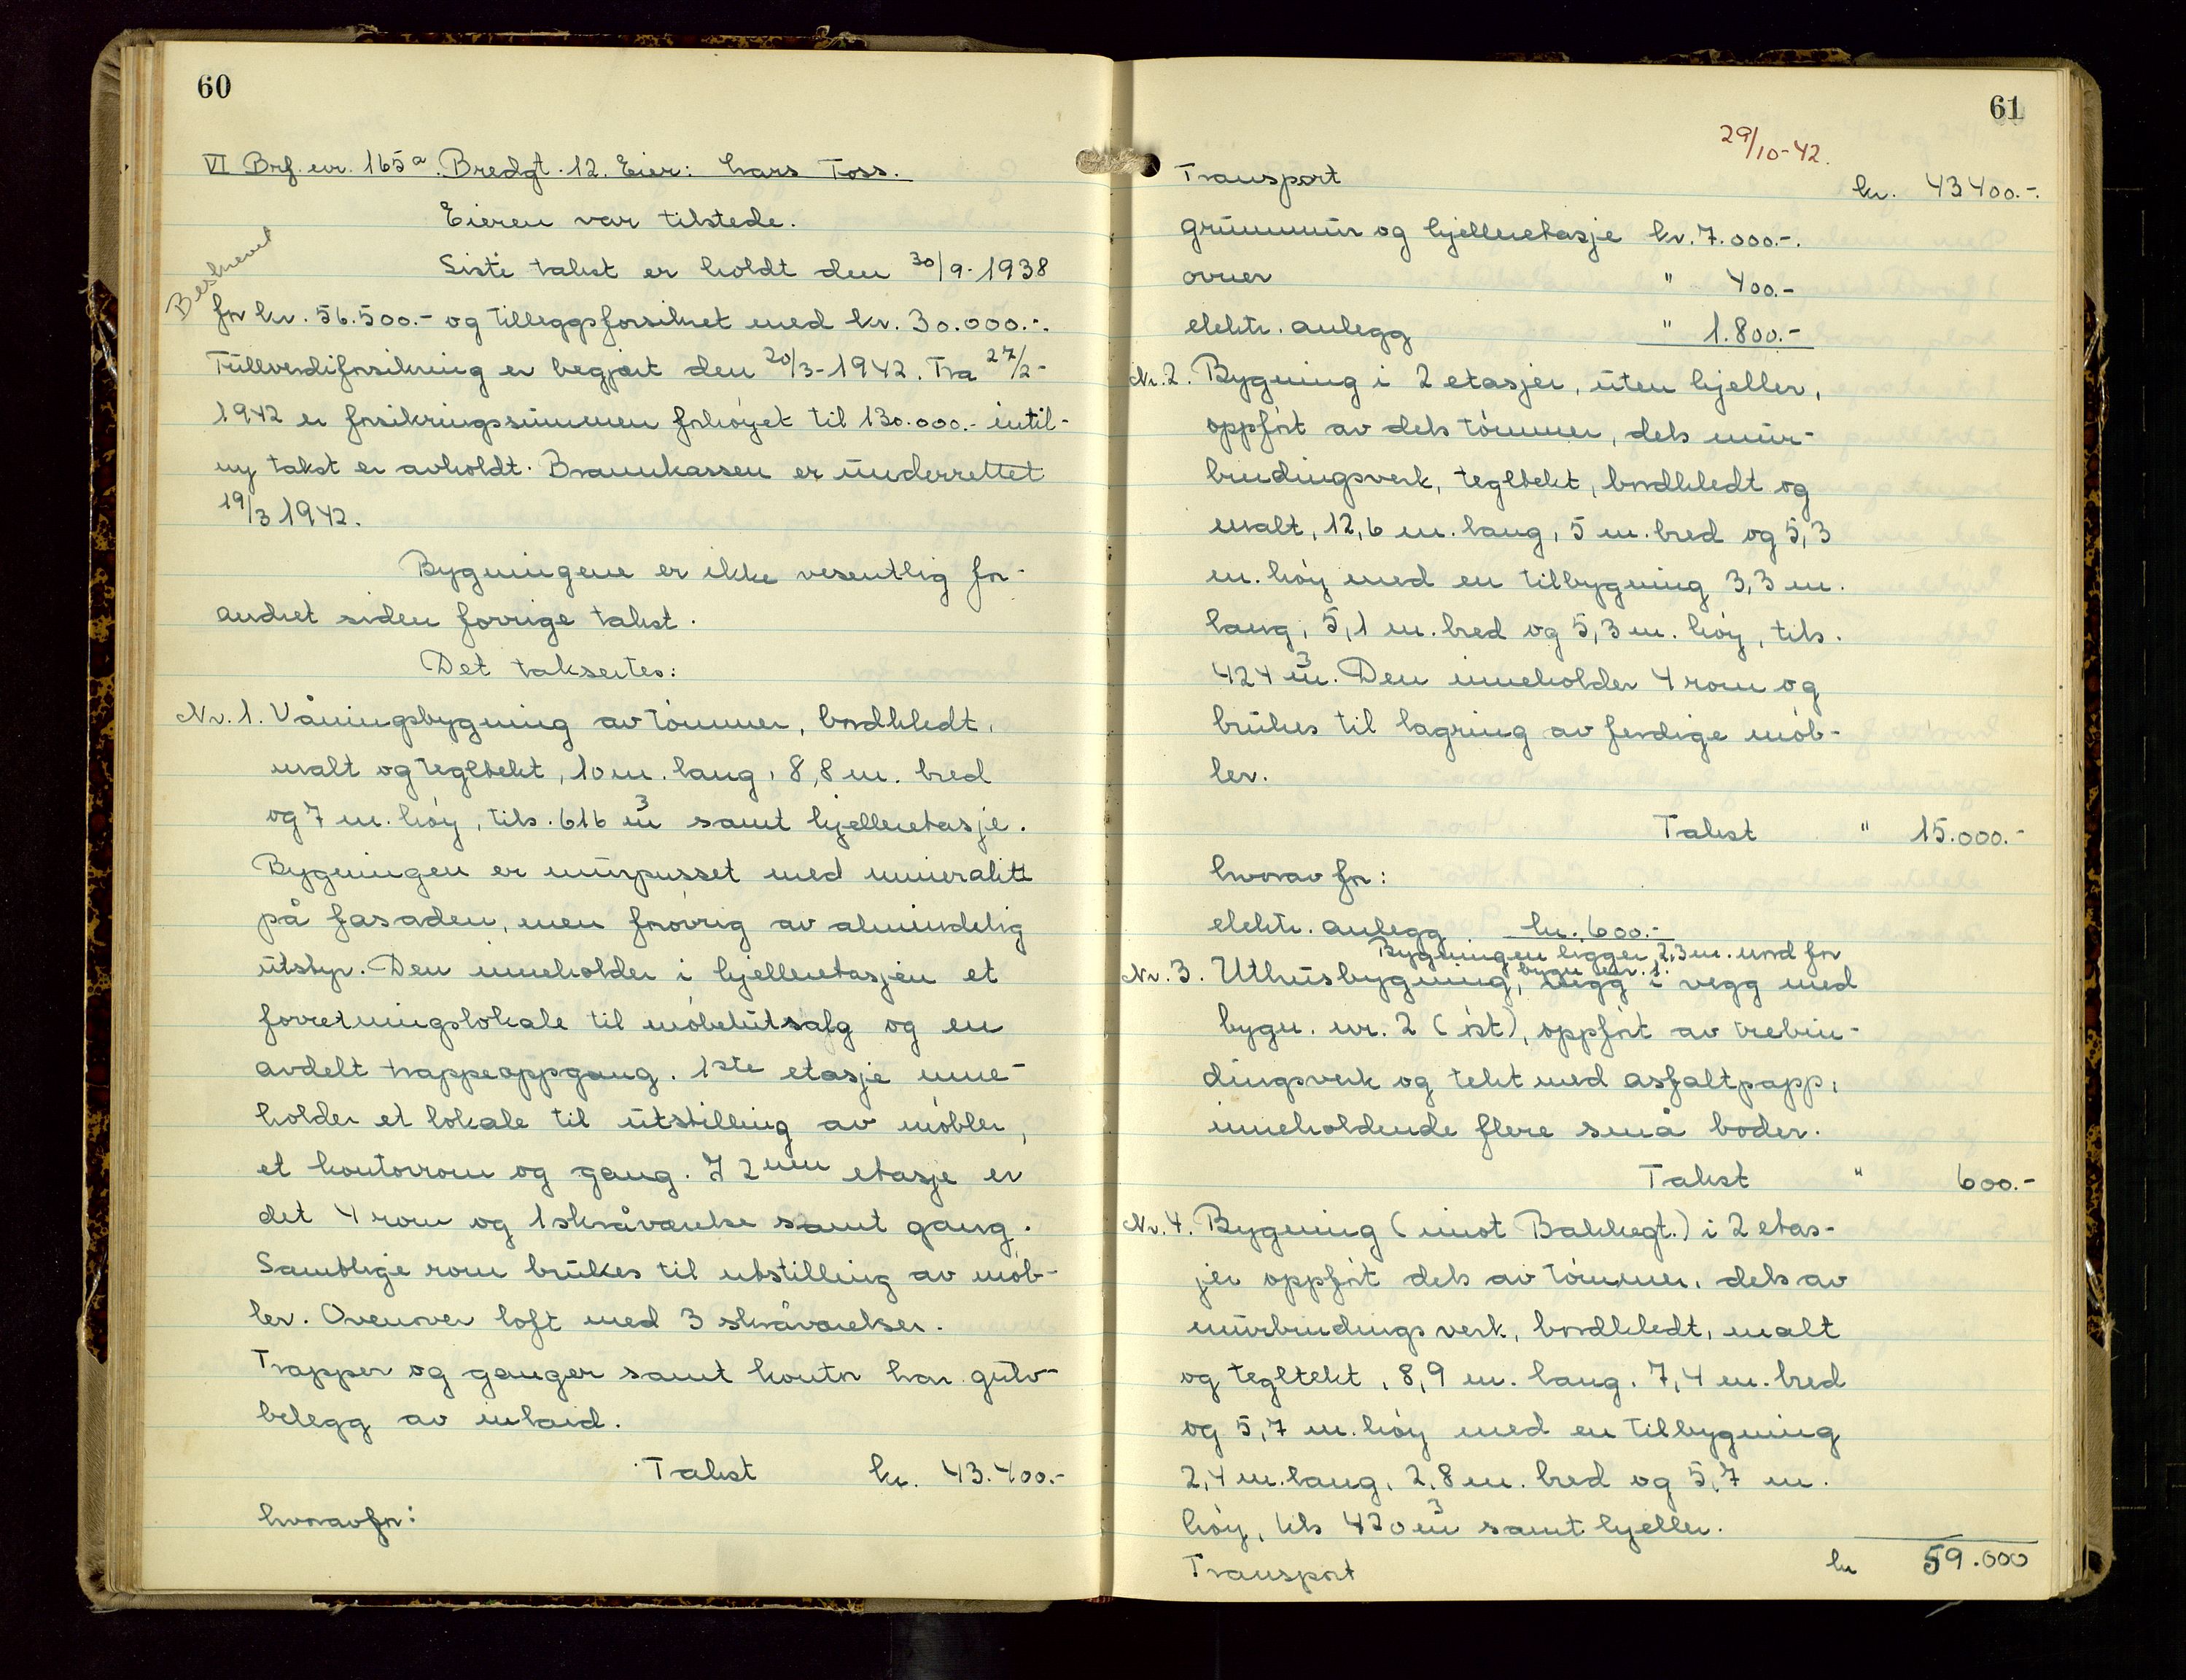 60
VI Brf. nr. 165ª. Bredgt. 12. Eier: Lars Foss.
Eieren var tilstede.
Beskrevet
Siste takst er holdt den 30/9-1938
for kr. 56.500.- og tilleggsforsikret med kr. 30.000.-.
Fullverdiforsikring er begjært den 20/3-1942. Fra 27/2-
1942 er forsikringssummen forhøyet til 130.000.- intil-
ny takst er avholdt. Brannkassen er underrettet
19/3 1942.
Bygningene er ikke vesentlig for-
andret siden forrige takst.
Det takseres:
Nr. 1. Våningsbygning av tømmer, bordkledt,
malt og tegltekt, 10 m. lang, 8,8 m. bred
og 7 m. høy, tils. 616 m³ samt kjelleretasje.
Bygningen er murpusset med mineralitt
på fasaden, men forøvrig av almindelig
utstyr. Den inneholder i kjelleretasjen et
forretningslokale til møbelutsalg og en
avdelt trappeoppgang. 1ste etasje inne-
holder et lokale til utstilling av møbler,
et kontorrom og gang. I 2nen etasje er
det 4 rom og 1 skråværelse samt gang.
Samtlige rom brukes til utstilling av møb-
ler. Ovenover loft med 3 skråværelser.
Trapper og ganger samt kontor har gulv-
belegg av inlaid.
Takst kr. 43.400.-
hvorav for:
61
29/10-42.
Transport kr. 43400.-.
grunnmur og kjelleretasje kr. 7.000.-.
ovner " 400.-
elektr. anlegg " 1.800.-
Nr. 2. Bygning i 2 etasjer, uten kjeller,
oppført av dels tømmer, dels mur-
bindingsverk, tegltekt, bordkledt og
malt, 12,6 m. lang, 5 m. bred og 5,3
m. høy med en tilbygning 3,3 m.
lang, 5,1 m. bred og 5,3 m. høy, tils.
424 m³. Den inneholder 4 rom og
brukes til lagring av ferdige møb-
ler.
Takst " 15.000.-
hvorav for:
elektr. anlegg kr. 600.-
Bygningen ligger 2,3 m. nord for
bygn. nr. 1.
Nr. 3. Uthusbygning, vegg i vegg med
bygn. nr. 2 (øst), oppført av trebin-
dingsverk og tekt med asfaltpapp,
inneholdende flere små boder.
Takst " 600.-
Nr. 4. Bygning (imot Bakkegt.) i 2 etas-
jer oppført dels av tømmer, dels av
murbindingsverk, bordkledt, malt
og tegltekt, 8,9 m. lang, 7,4 m. bred
og 5,7 m. høy med en tilbygning
2,4 m. lang, 2,8 m. bred og 5,7 m.
høy, tils 420 m³ samt kjeller.
Transport kr 59.000